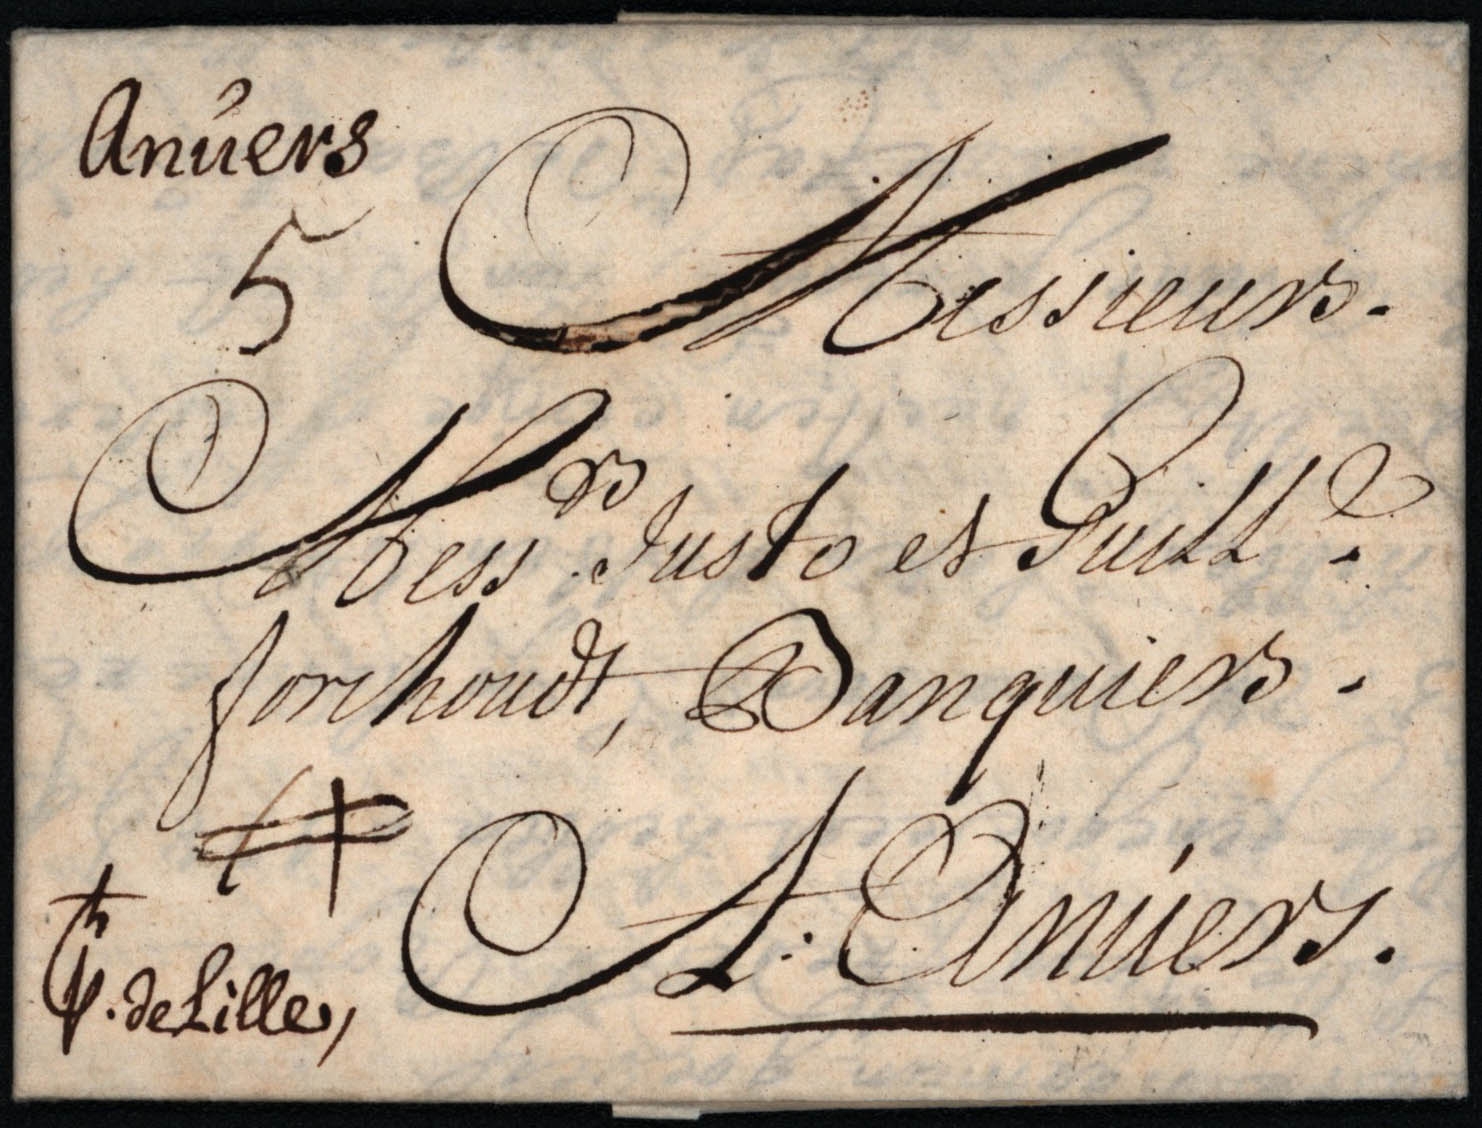 Anúers
5
Messieurs.
Mess.rs Justo et Guill.e
forchoudt, Banquiers.
A. Anúers.
p. de Lille,